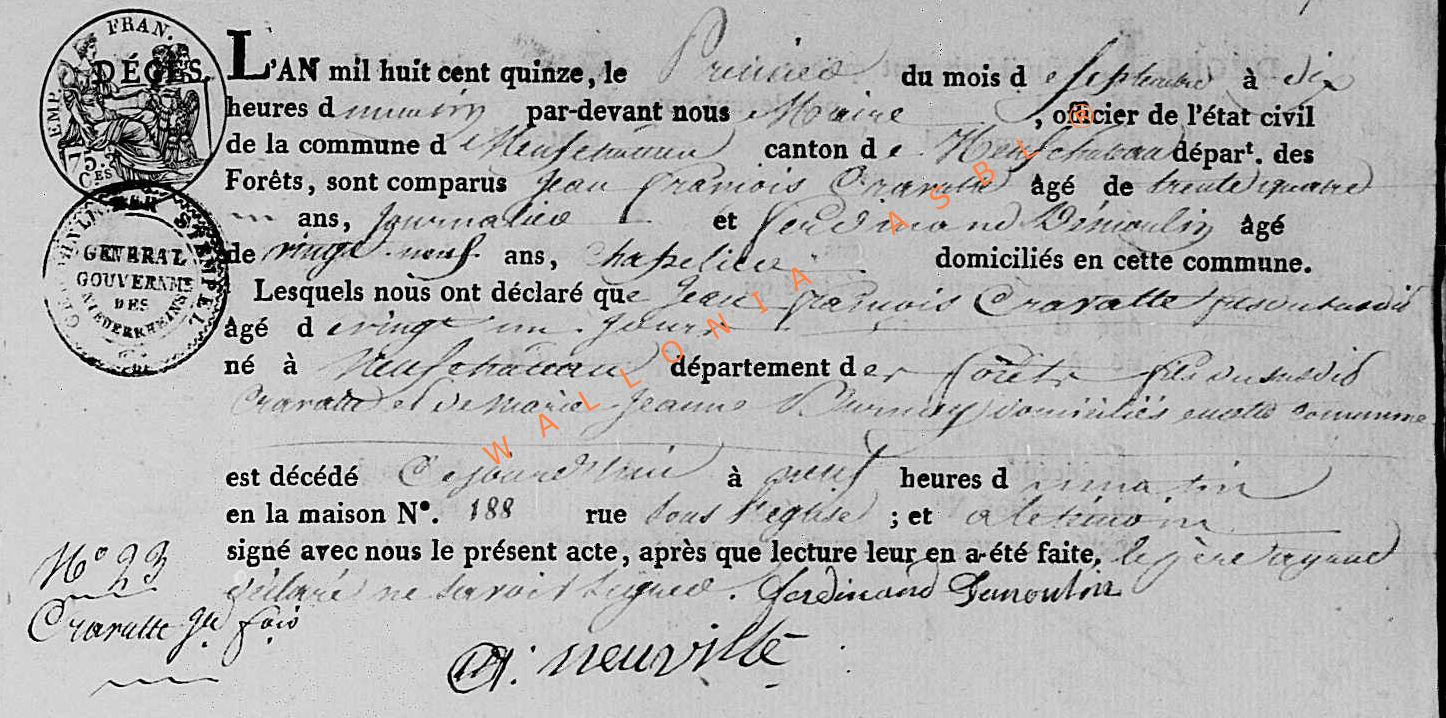 EMP. FRAN.
75. CES
DÉCÈS.
GENERAL
GOUVERNMT
DES
NIEDERRHEINS
STEMPEL
L'AN mil huit cent quinze, le Premier du mois de Septembre à dix
heures du matin par-devant nous Maire , officier de l'état civil
de la commune de Neufchateau canton de Neufchateau départ. des
Forêts, sont comparus Jean François Cravatte âgé de trente quatre
ans, Journalier et Ferdinand Démoulin âgé
de vingt neuf ans, chapelier domiciliés en cette commune.
Lesquels nous ont déclaré que Jean François Cravatte
âgé de vingt un Jours
né à Neufchateau département des forêts fils du susdit
Cravatte et de Marie Jeanne domiciliés en cette commune
est décédé Cejourd'hui à neuf heures du matin
en la maison N°. 188 rue sous l'église ; et le témoin
signé avec nous le présent acte, après que lecture leur en a été faite, le père ayant
déclaré ne savoir signer. Ferdinand Demoulin
N° 23
Cravatte Jn fois
neuville
WALLONIA ASBL ®